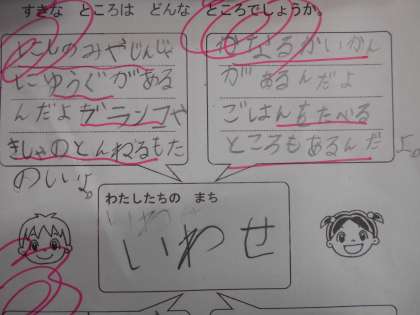 すきな ところは どんな ところでしょうか。
にしのみやじんじゃ
にゆうぐがある
んだよブランコや
きしゃのとんねるもた
のしいよ。
かなるかいかん
があるんだよ
ごはんもたべる
ところもあるんだよ。
わたしたちの まち
いわせ
いわせ